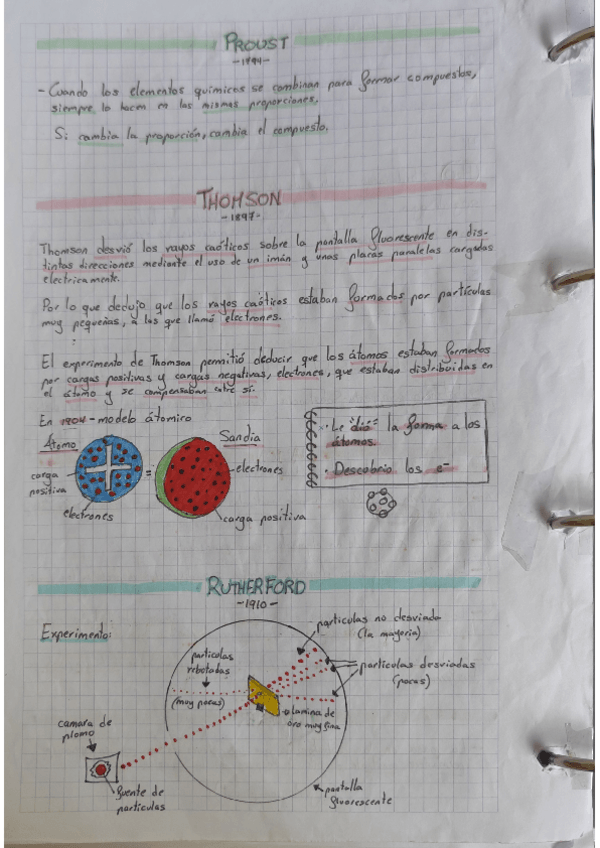 PROUST
-1794-
- Cuando los elementos químicos se combinan para formar compuestos,
siempre lo hacen en las mismas proporciones.
Si cambia la proporción, cambia el compuesto.
THOMSON
-1897-
Thomson desvió los rayos caóticos sobre la pantalla fluorescente en dis-
tintas direcciones mediante el uso de un imán y unas placas paralelas cargadas
electricamente.
Por lo que dedujo que los rayos caóticos estaban formados por partículas
muy pequeñas, a las que llamó electrones.
:
El experimento de Thomson permitió deducir que los átomos estaban formados
por cargas positivas y cargas negativas, electrones, que estaban distribuidas en
el átomo y se compensaban entre sí.
En 1904 - modelo átomico
Átomo
carga
positiva
electrones
=
Sandia
electrones
carga positiva
· Le "dió" la forma a los
átomos.
· Descubrio los e-
RUTHERFORD
-1910-
Experimento:
particulas no desviada
(la mayoria)
particulas
rebotadas
(muy pocas)
particulas desviadas
(pocas)
lamina de
oro muy fina
camara de
plomo
fuente de
particulas
pantalla
fluorescente